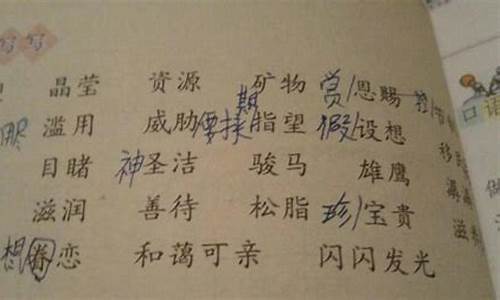 写写
晶莹 资源 矿物 赏/恩赐 控/节
期
滥用 威胁 要挟 指望 假/设想 移
目睹 神圣洁 骏马 雄鹰 潺
滋润 善待 松脂 珍/宝贵 滋
想眷恋 和蔼可亲 闪闪发光
口语